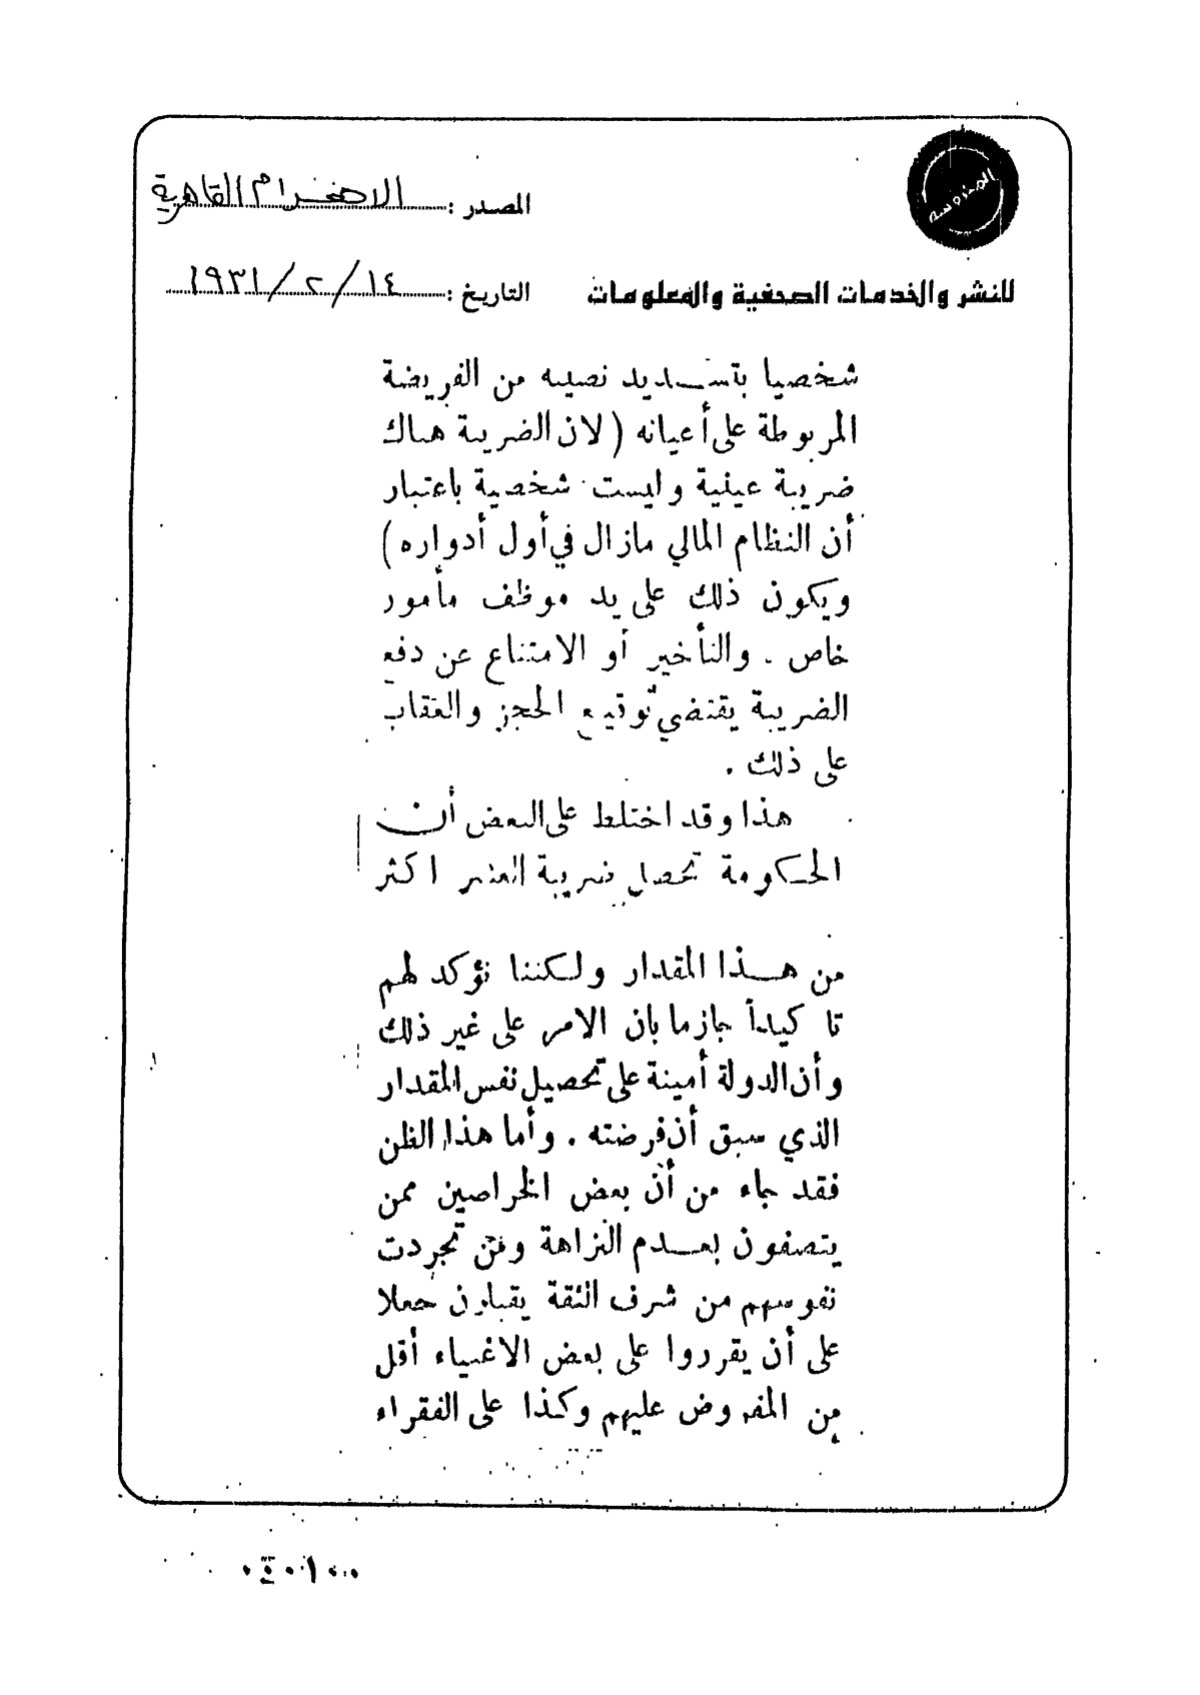 المحروسة
المصدر : الاهرام القاهرية
للنشر والخدمات الصحفية والمعلومات
التاريخ : ١٤ / ٢ / ١٩٣١
شخصيا بتسديد نصيبه من الفريضة
المربوطة على أعيانه ( لان الضريبة هناك
ضريبة عينية وليست شخصية باعتبار
أن النظام المالي مازال في أول أدواره )
ويكون ذلك على يد موظف مأمور
خاص . والتأخير أو الامتناع عن دفع
الضريبة يقتضي توقيع الحجز والعقاب
على ذلك .
هذا وقد اختلط على البعض أن
الحكومة تحصل ضريبة العشر اكثر
من هذا المقدار ولكننا نؤكد لهم
تا كيدأ جازما بان الامر على غير ذلك
وأن الدولة أمينة على تحصيل نفس المقدار
الذي سبق أن فرضته . وأما هذا الظن
فقد جاء من أن بعض الخراصين ممن
يتصفون بعدم النزاهة ومن تجردت
نفوسهم من شرف الثقة يقبلون جعلا
على أن يقرروا على بعض الاغنياء أقل
من المفروض عليهم وكذا على الفقراء